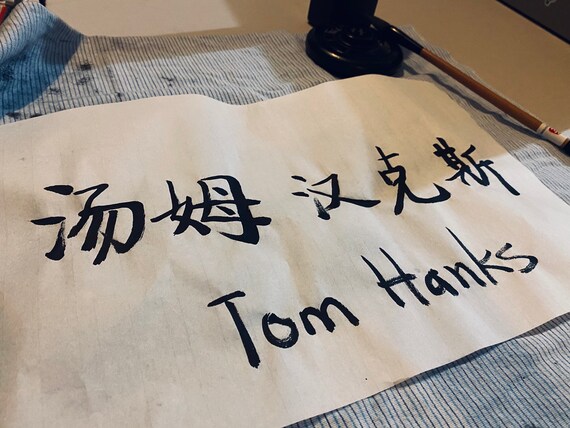 汤姆 汉克斯
Tom Hanks